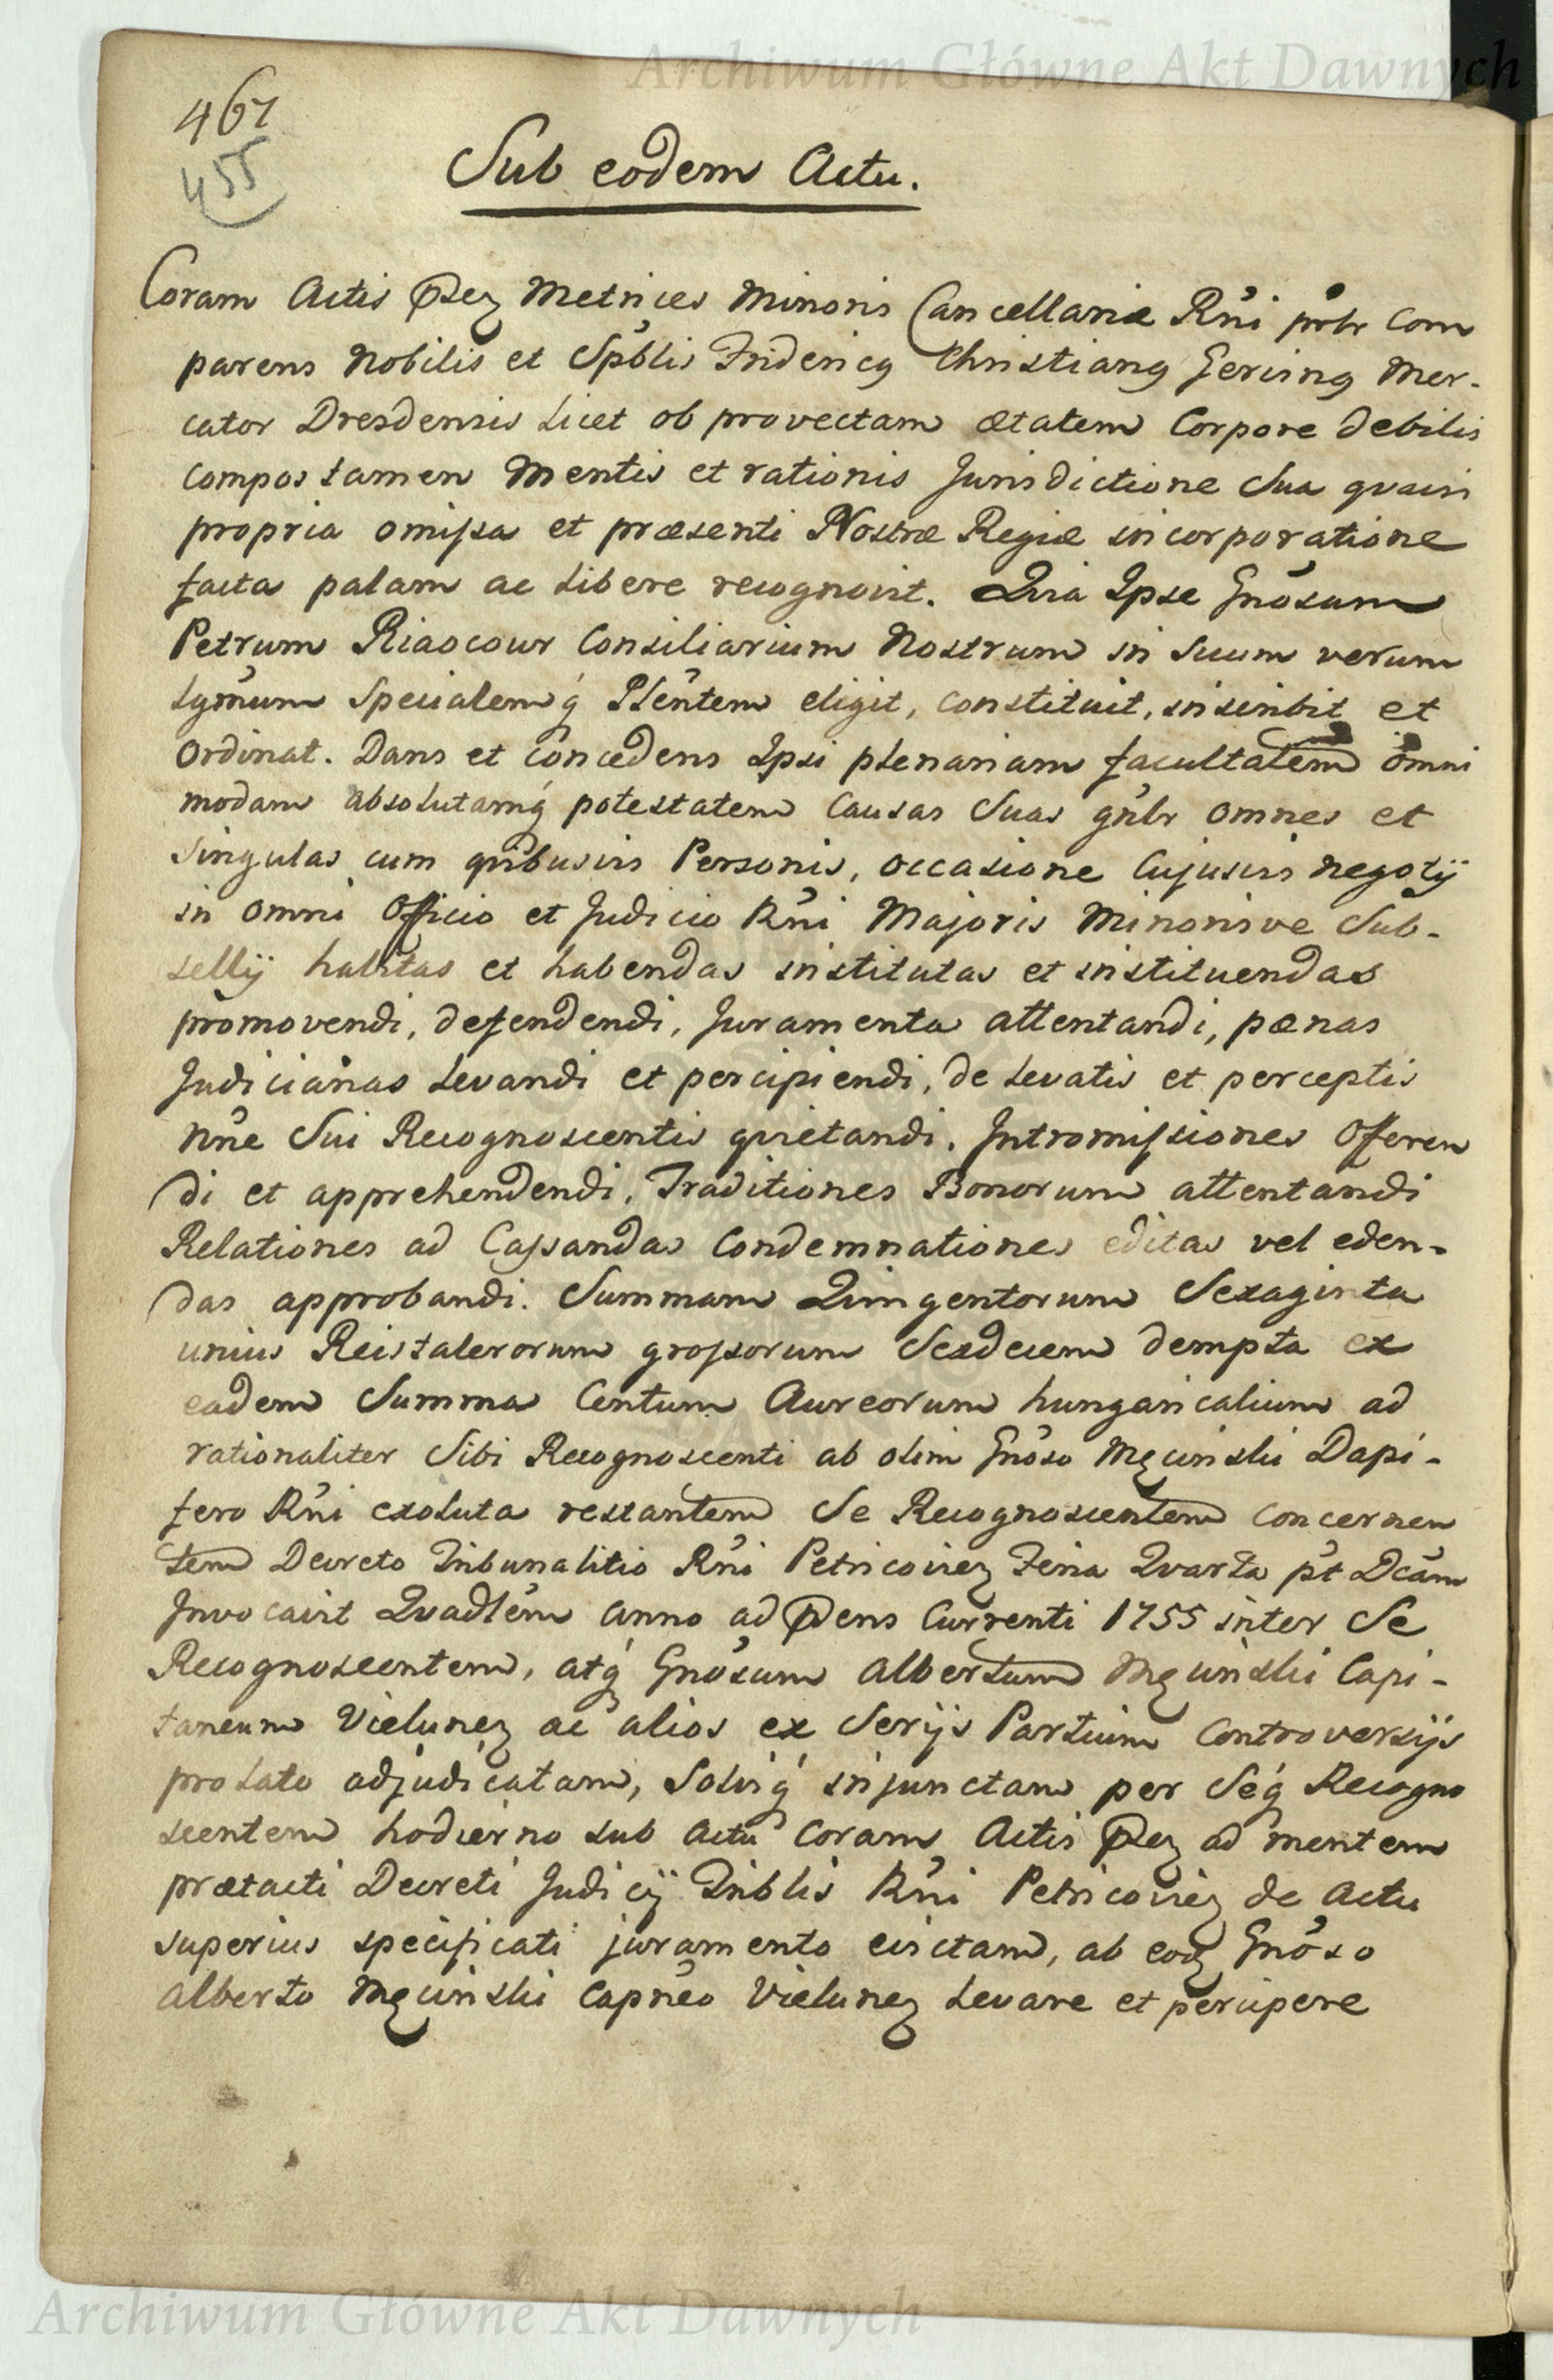 Archiwum Główne Akt Dawnych
467
455
Sub eodem Actu.
Coram Actis Pñtez Metrices Minoris Cancellariæ Rñi pñlr Com
parens Nobilis et Spblis Fridericq Christianq Gering Mer-
cator Dresdensis licet ob provectam ætatem Corpore debilis
Compos tamen Mentis et rationis Jurisdictione Sua quavis
propria omissa et præsenti Nostræ Regiæ incorporatione
facta palam ac libere recognovit. Quia Ipse Gnõsum
Petrum Riaocour Consiliarium Nostrum in Suum verum
Lgmum Specialemq́ Plentem eligit, constituit, inscribit et
Ordinat. Dans et concedens Ipsi plenariam facultatem omni
modam absolutamq́ potestatem Causas Suas gñlr omnes et
Singulas cum qribusvis Personis, occasione Cujusvis negotÿ
in omni Officio et Judicio Rñi Majoris Minorisve Sub-
sellÿ habitas et habendas institutas et instituendas
promovendi, defendendi, Juramenta attentandi, pænas
Judiciarias Levandi et percipiendi, de levatis et perceptis
Nñe Sui Recognoscentis quietandi, Intromissiones Offeren
di et apprehendendi, Traditiones Bonorum attentandi
Relationes ad Cassandas Condemnationes editas vel eden-
das approbandi. Summam Quingentorum Sexaginta
unius Reistalerorum grossorum Sexdecem dempta ex
eadem Summa Centum Aureorum hungaricalium ad
rationaliter Sibi Recognoscenti ab olim Gnõso Męcinski Dapi-
fero Rñi exoluta restantem Se Recognoscentem concernen
tem Decreto Tribunalitio Rñi Petricoviez Feria Quarta pt Dcam
Invocavit Quadlem Anno ad pdens Currenti 1755 inter Se
Recognoscentem, atq́ Gnõsum Albertum Męcinski Capi-
taneum Vielunez ac alios ex Serÿs Partium Controversÿs
prolato adjudicatam, Solviq́ injunctam per Seq́ Recogno
scentem hodierno sub Actu Coram Actis pñtez ad mentem
prætacti Decreti Judicÿ Triblis Rñi Petricoviez de Actu
superius specificati juramento evictam, ab eodz Gnõso
Alberto Męcinski Capnẽo Vielunez Levare et percipere
Archiwum Główne Akt Dawnych